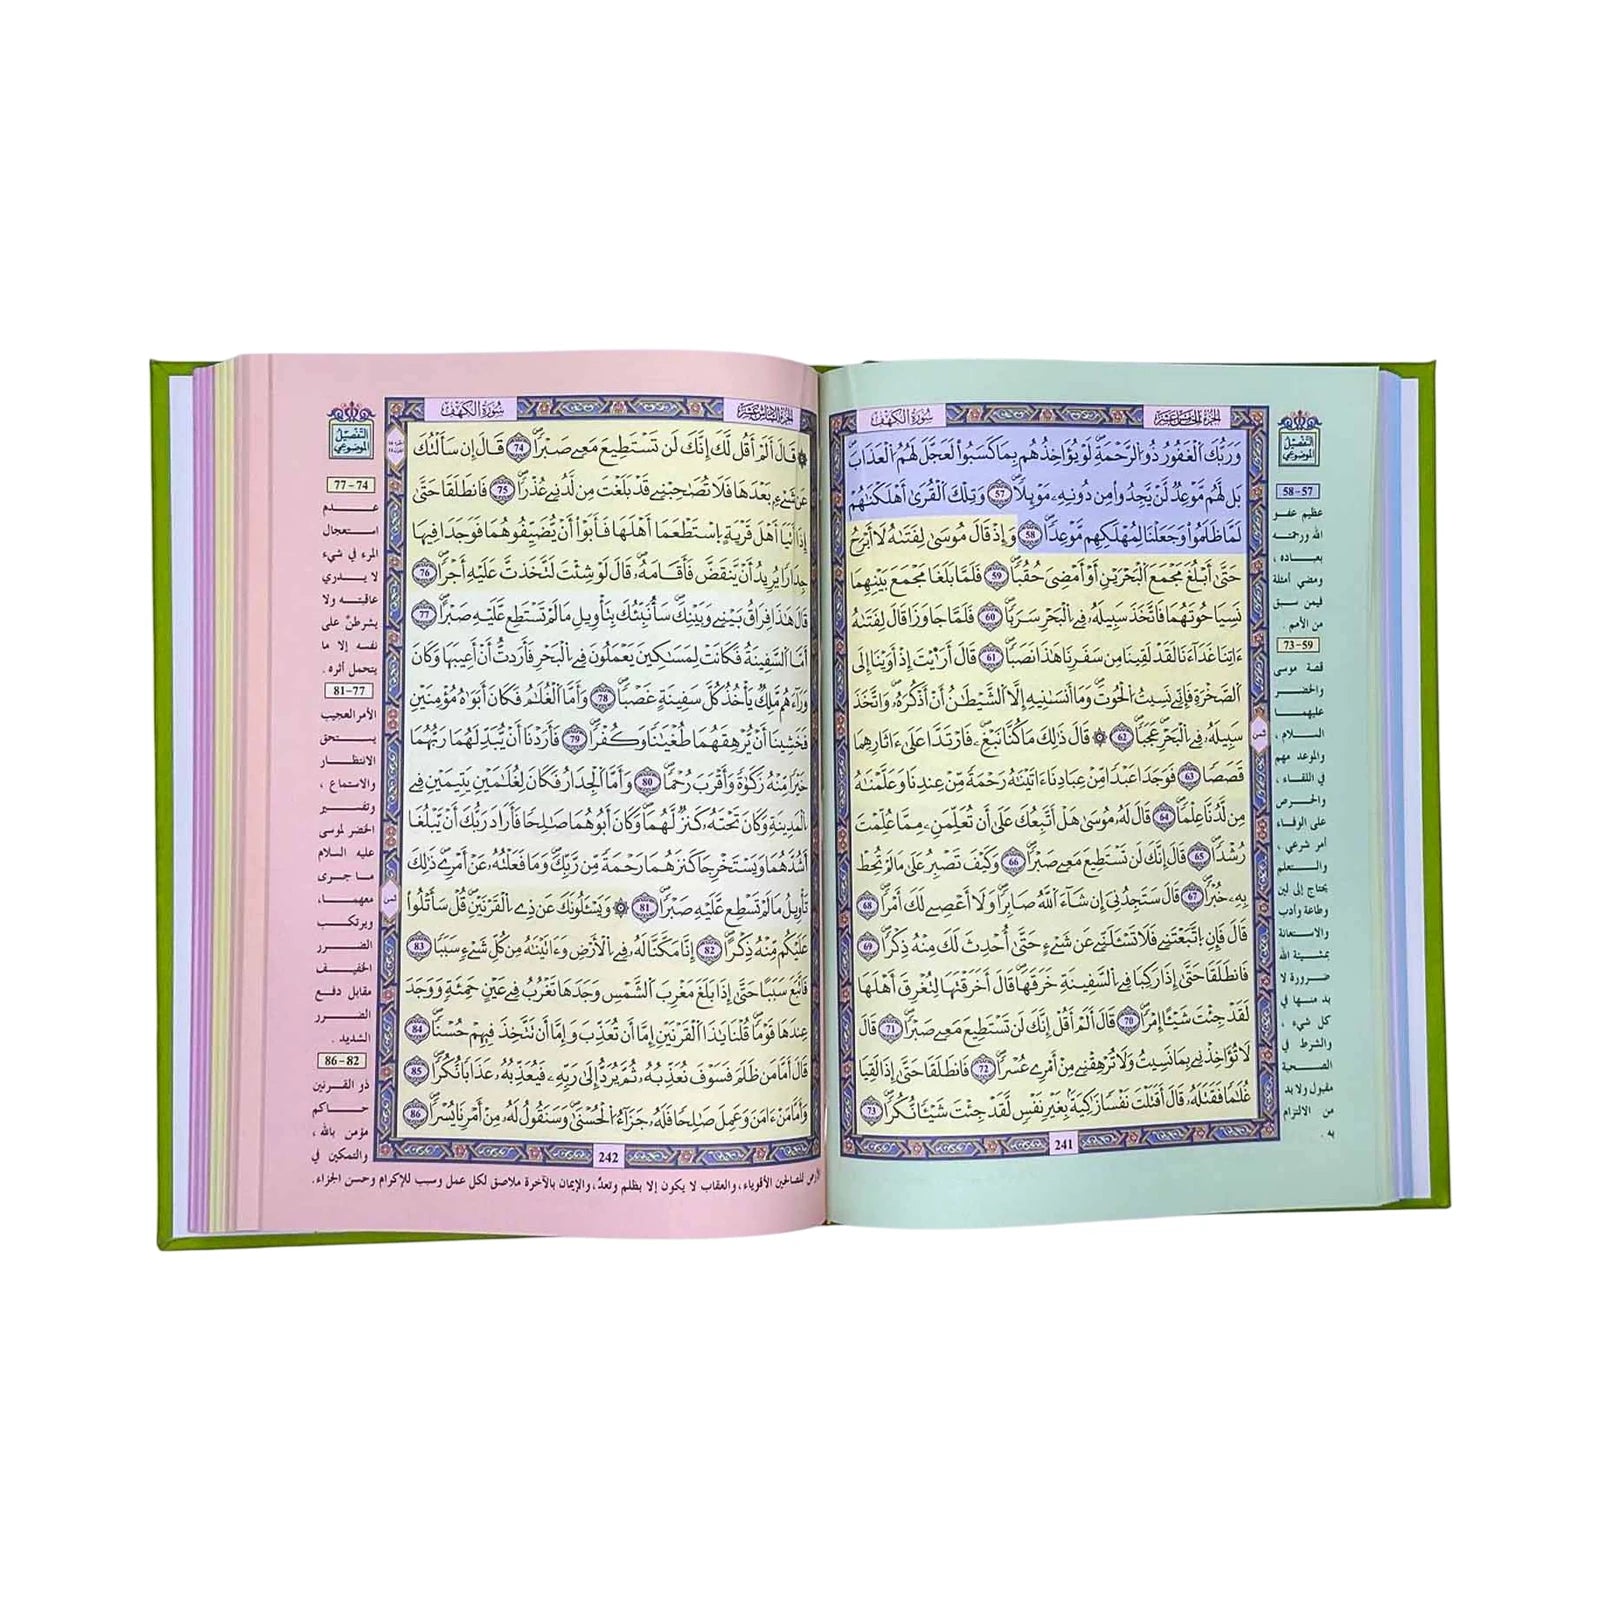 الجزء الخامس عشر
سورة الكهف
وَرَبُّكَ اَلْغَفُورُ ذُو اُلرَّحْمَةِ لَوْ يُؤَاخِذُهُم بِمَا كَسَبُواْ لَعَجَّلَ لَهُمُ اُلْعَذَابَ
بَل لَّهُم مَّوْعِدٌ لَّنْ يَّجِدُواْ مِن دُونِهِۦ مَوْئِلاٗ 57 وَتِلْكَ اَلْقُرَىٰ أَهْلَكْنَٰهُمْ
لَمَّا ظَلَمُواْ وَجَعَلْنَا لِمُهْلَكِهِم مَّوْعِداٗ 58 وَإِذْ قَالَ مُوسَىٰ لِفَتَىٰهُ لَا أَبْرَحُ
حَتَّىٰ أَبْلُغَ مَجْمَعَ اَلْبَحْرَيْنِ أَوْ أَمْضِيَ حُقُباٗ 59 فَلَمَّا بَلَغَا مَجْمَعَ بَيْنِهِمَا
نَسِيَا حُوتَهُمَا فَاتَّخَذَ سَبِيلَهُۥ فِي اِلْبَحْرِ سَرَباٗ 60 فَلَمَّا جَاوَزَا قَالَ لِفَتَىٰهُ
ءَاتِنَا غَدَآءَنَا لَقَدْ لَقِينَا مِن سَفَرِنَا هَٰذَا نَصَباٗ 61 قَالَ أَرَٰٓيْتَ إِذْ أَوَيْنَا إِلَى
اَلصَّخْرَةِ فَإِنِّي نَسِيتُ اُلْحُوتَ وَمَا أَنسَىٰنِيهِ إِلَّا اَلشَّيْطَٰنُ أَنْ أَذْكُرَهُۥ وَاتَّخَذَ
سَبِيلَهُۥ فِي اِلْبَحْرِ عَجَباٗ 62 ۞ قَالَ ذَٰلِكَ مَا كُنَّا نَبْغِۦ فَارْتَدَّا عَلَىٰ ءَاثَارِهِمَا
قَصَصاٗ 63 فَوَجَدَا عَبْداٗ مِّنْ عِبَادِنَا ءَاتَيْنَٰهُ رَحْمَةٗ مِّنْ عِندِنَا وَعَلَّمْنَٰهُ
مِن لَّدُنَّا عِلْماٗ 64 قَالَ لَهُۥ مُوسَىٰ هَلْ أَتَّبِعُكَ عَلَىٰ أَن تُعَلِّمَنِۦ مِمَّا عُلِّمْتَ
رُشْداٗ 65 قَالَ إِنَّكَ لَن تَسْتَطِيعَ مَعِي صَبْراٗ 66 وَكَيْفَ تَصْبِرُ عَلَىٰ مَا لَمْ تُحِطْ
بِهِۦ خُبْراٗ 67 قَالَ سَتَجِدُنِيَ إِن شَآءَ اَللَّهُ صَابِراٗ وَلَا أَعْصِي لَكَ أَمْراٗ 68
قَالَ فَإِنِ اِتَّبَعْتَنِي فَلَا تَسْـَٔلَنِّي عَن شَيْءٍ حَتَّىٰ أُحْدِثَ لَكَ مِنْهُ ذِكْراٗ 69
فَانطَلَقَا حَتَّىٰ إِذَا رَكِبَا فِي اِلسَّفِينَةِ خَرَقَهَا قَالَ أَخَرَقْتَهَا لِتُغْرِقَ أَهْلَهَا
لَقَدْ جِئْتَ شَيْـٔاً إِمْراٗ 70 قَالَ أَلَمْ أَقُلْ إِنَّكَ لَن تَسْتَطِيعَ مَعِي صَبْراٗ 71 قَالَ
لَا تُؤَاخِذْنِي بِمَا نَسِيتُ وَلَا تُرْهِقْنِي مِنْ أَمْرِي عُسْراٗ 72 فَانطَلَقَا حَتَّىٰ إِذَا لَقِيَا
غُلَٰماٗ فَقَتَلَهُۥ قَالَ أَقَتَلْتَ نَفْساٗ زَٰكِيَةَۢ بِغَيْرِ نَفْسٖ لَّقَدْ جِئْتَ شَيْـٔاٗ نُّكُراٗ 73
241
ثمن
التفصيل
الموضوعي
58-57
عظيم عفو
الله ورحمته
بعباده ،
ومضي أمثلة
فيمن سبق
من الأمم .
73-59
قصة موسى
والخضر
عليهما
السلام ،
والموعد مهم
في اللقاء ،
والحرص
على الوفاء
أمر شرعي ،
والمتعلم
يحتاج إلى لين
وطاعة وأدب
والاستعانة
بمشيئة الله
ضرورة لا
بد منها في
كل شيء ،
والشرط في
الصحبة
مقبول ولا بد
من الالتزام
به .
سورة الكهف
۞ قَالَ أَلَمْ أَقُل لَّكَ إِنَّكَ لَن تَسْتَطِيعَ مَعِي صَبْراٗ 74 قَالَ إِن سَأَلْتُكَ
عَن شَيْءِۢ بَعْدَهَا فَلَا تُصَٰحِبْنِي قَدْ بَلَغْتَ مِن لَّدُنِي عُذْراٗ 75 فَانطَلَقَا حَتَّىٰ
إِذَا أَتَيَا أَهْلَ قَرْيَةٍ اِسْتَطْعَمَا أَهْلَهَا فَأَبَوْاْ أَنْ يُّضَيِّفُوهُمَا فَوَجَدَا فِيهَا
جِدَاراٗ يُرِيدُ أَنْ يَّنقَضَّ فَأَقَامَهُۥ قَالَ لَوْ شِئْتَ لَتَّخَذتَّ عَلَيْهِ أَجْراٗ 76
قَالَ هَٰذَا فِرَاقُ بَيْنِي وَبَيْنِكَ سَأُنَبِّئُكَ بِتَأْوِيلِ مَا لَمْ تَسْتَطِع عَّلَيْهِ صَبْراٗ 77
أَمَّا اَلسَّفِينَةُ فَكَانَتْ لِمَسَٰكِينَ يَعْمَلُونَ فِي اِلْبَحْرِ فَأَرَدتُّ أَنْ أَعِيبَهَا وَكَانَ
وَرَآءَهُم مَّلِكٞ يَأْخُذُ كُلَّ سَفِينَةٍ غَصْباٗ 78 وَأَمَّا اَلْغُلَٰمُ فَكَانَ أَبَوَٰهُ مُؤْمِنَيْنِ
فَخَشِينَا أَنْ يُّرْهِقَهُمَا طُغْيَٰناٗ وَكُفْراٗ 79 فَأَرَدْنَا أَنْ يُّبَدِّلَهُمَا رَبُّهُمَا
خَيْراٗ مِّنْهُ زَكَوٰةٗ وَأَقْرَبَ رُحْماٗ 80 وَأَمَّا اَلْجِدَارُ فَكَانَ لِغُلَٰمَيْنِ يَتِيمَيْنِ فِي
اِلْمَدِينَةِ وَكَانَ تَحْتَهُۥ كَنزٞ لَّهُمَا وَكَانَ أَبُوهُمَا صَٰلِحاٗ فَأَرَادَ رَبُّكَ أَنْ يَّبْلُغَا
أَشُدَّهُمَا وَيَسْتَخْرِجَا كَنزَهُمَا رَحْمَةٗ مِّن رَّبِّكَ وَمَا فَعَلْتُهُۥ عَنْ أَمْرِي ذَٰلِكَ
تَأْوِيلُ مَا لَمْ تَسْطِع عَّلَيْهِ صَبْراٗ 81 ۞ وَيَسْـَٔلُونَكَ عَن ذِي اِلْقَرْنَيْنِ قُلْ سَأَتْلُواْ
عَلَيْكُم مِّنْهُ ذِكْراٗ 82 إِنَّا مَكَّنَّا لَهُۥ فِي اِلْأَرْضِ وَءَاتَيْنَٰهُ مِن كُلِّ شَيْءٖ سَبَباٗ 83
فَاتَّبَعَ سَبَباً حَتَّىٰ إِذَا بَلَغَ مَغْرِبَ اَلشَّمْسِ وَجَدَهَا تَغْرُبُ فِي عَيْنٍ حَمِئَةٖ وَوَجَدَ
عِندَهَا قَوْماٗ قُلْنَا يَٰذَا اَلْقَرْنَيْنِ إِمَّا أَن تُعَذِّبَ وَإِمَّا أَن تَتَّخِذَ فِيهِمْ حُسْناٗ 84
قَالَ أَمَّا مَن ظَلَمَ فَسَوْفَ نُعَذِّبُهُۥ ثُمَّ يُرَدُّ إِلَىٰ رَبِّهِۦ فَيُعَذِّبُهُۥ عَذَاباٗ نُّكُراٗ 85
وَأَمَّا مَنْ ءَامَنَ وَعَمِلَ صَٰلِحاٗ فَلَهُۥ جَزَآءُ اُلْحُسْنَىٰ وَسَنَقُولُ لَهُۥ مِنْ أَمْرِنَا يُسْراٗ 86
242
ثمن
التفصيل
الموضوعي
77-74
عدم
استعجال
المرء في شيء
لا يدري
عاقبته ولا
يشرطن على
نفسه إلا ما
يتحمل أثره .
81-77
الأمر العجيب
يستحق
الانتظار
والاستماع ،
وتفسير
الخضر لموسى
عليه السلام
ما جرى
معهما،
ويرتكب
الضرر
الخفيف
مقابل دفع
الضرر
الشديد .
86-82
ذو القرنين
حاكم
مؤمن بالله ،
والتمكين في
الأرض للصالحين الأقوياء ، والعقاب لا يكون إلا بظلم وتعدّ، والإيمان بالآخرة ملاصق لكل عمل وسبب للإكرام وحسن الجزاء.